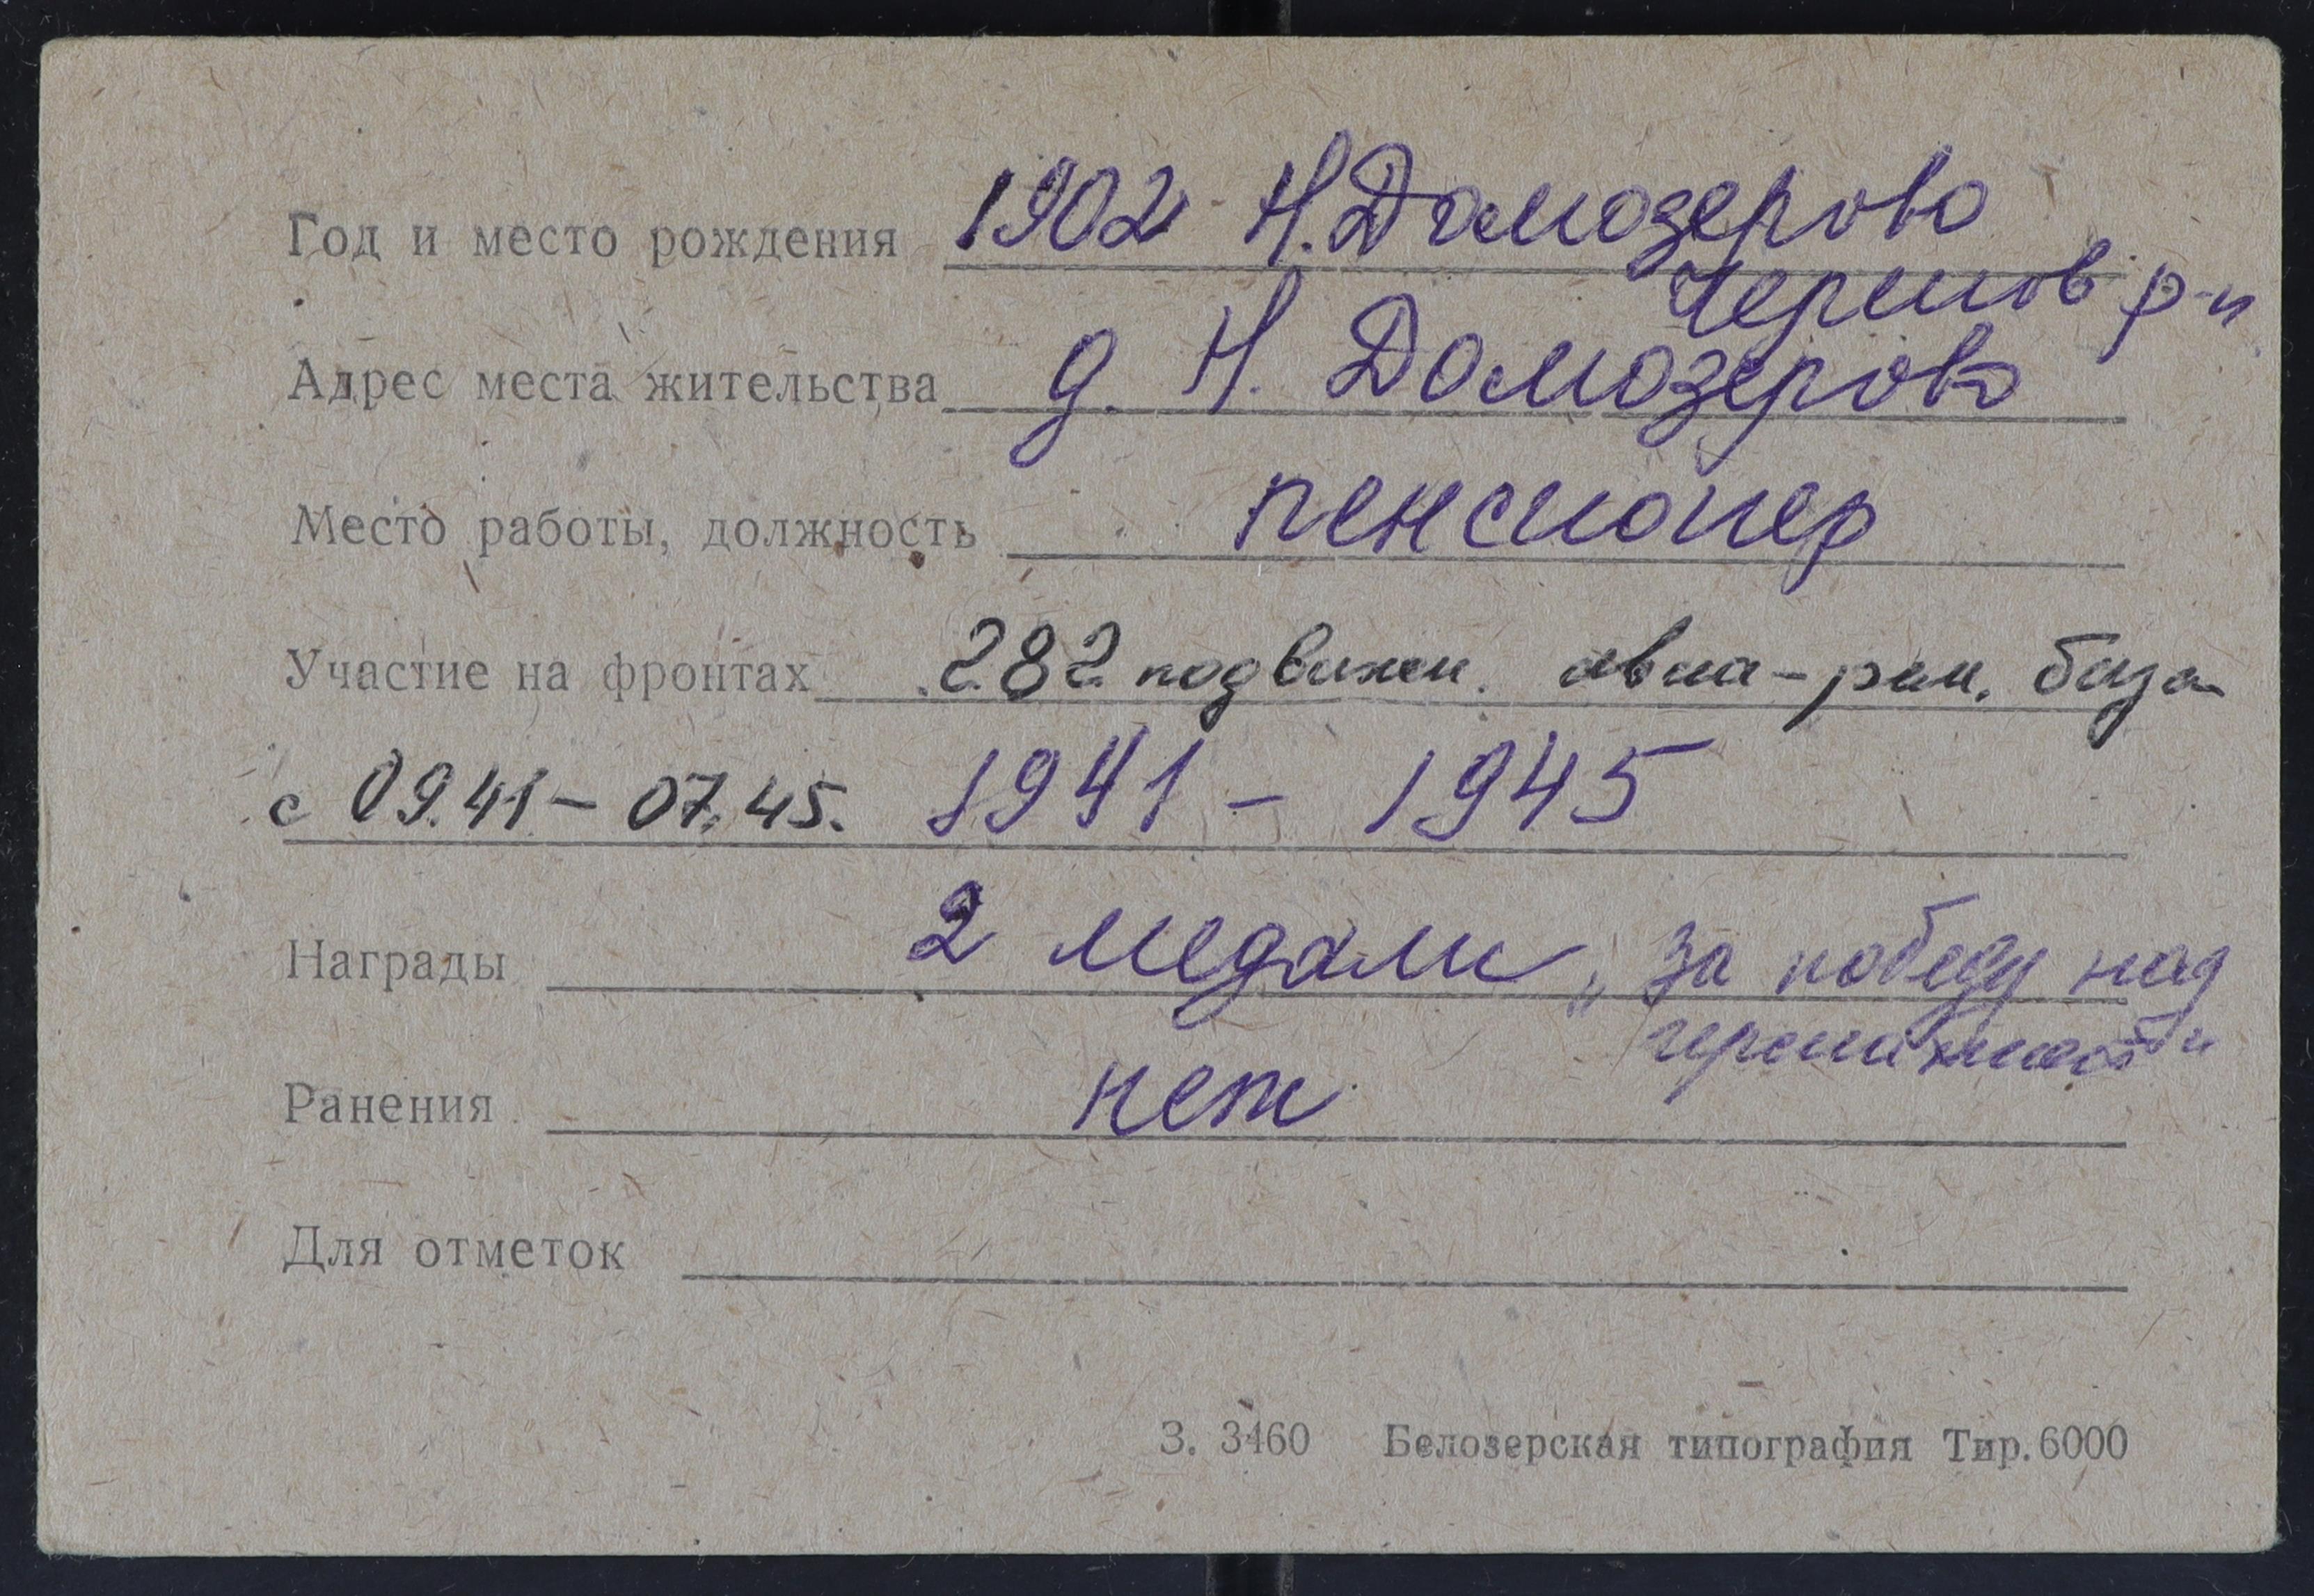 Год и место рождения 1902 Н. Домозерово
Черепов р-н
Адрес места жительства д. Н. Домозерово
Место работы, должность пенсионер
Участие на фронтах 282 подвижн. авиа-рем. база
с 09.41 – 07.45. 1941 – 1945
Награды 2 медали „За победу над
германией"
Ранения нет
Для отметок
З. 3460 Белозерская типография Тир. 6000